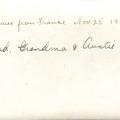 from France Nov 25 19
Grandma & Auntie